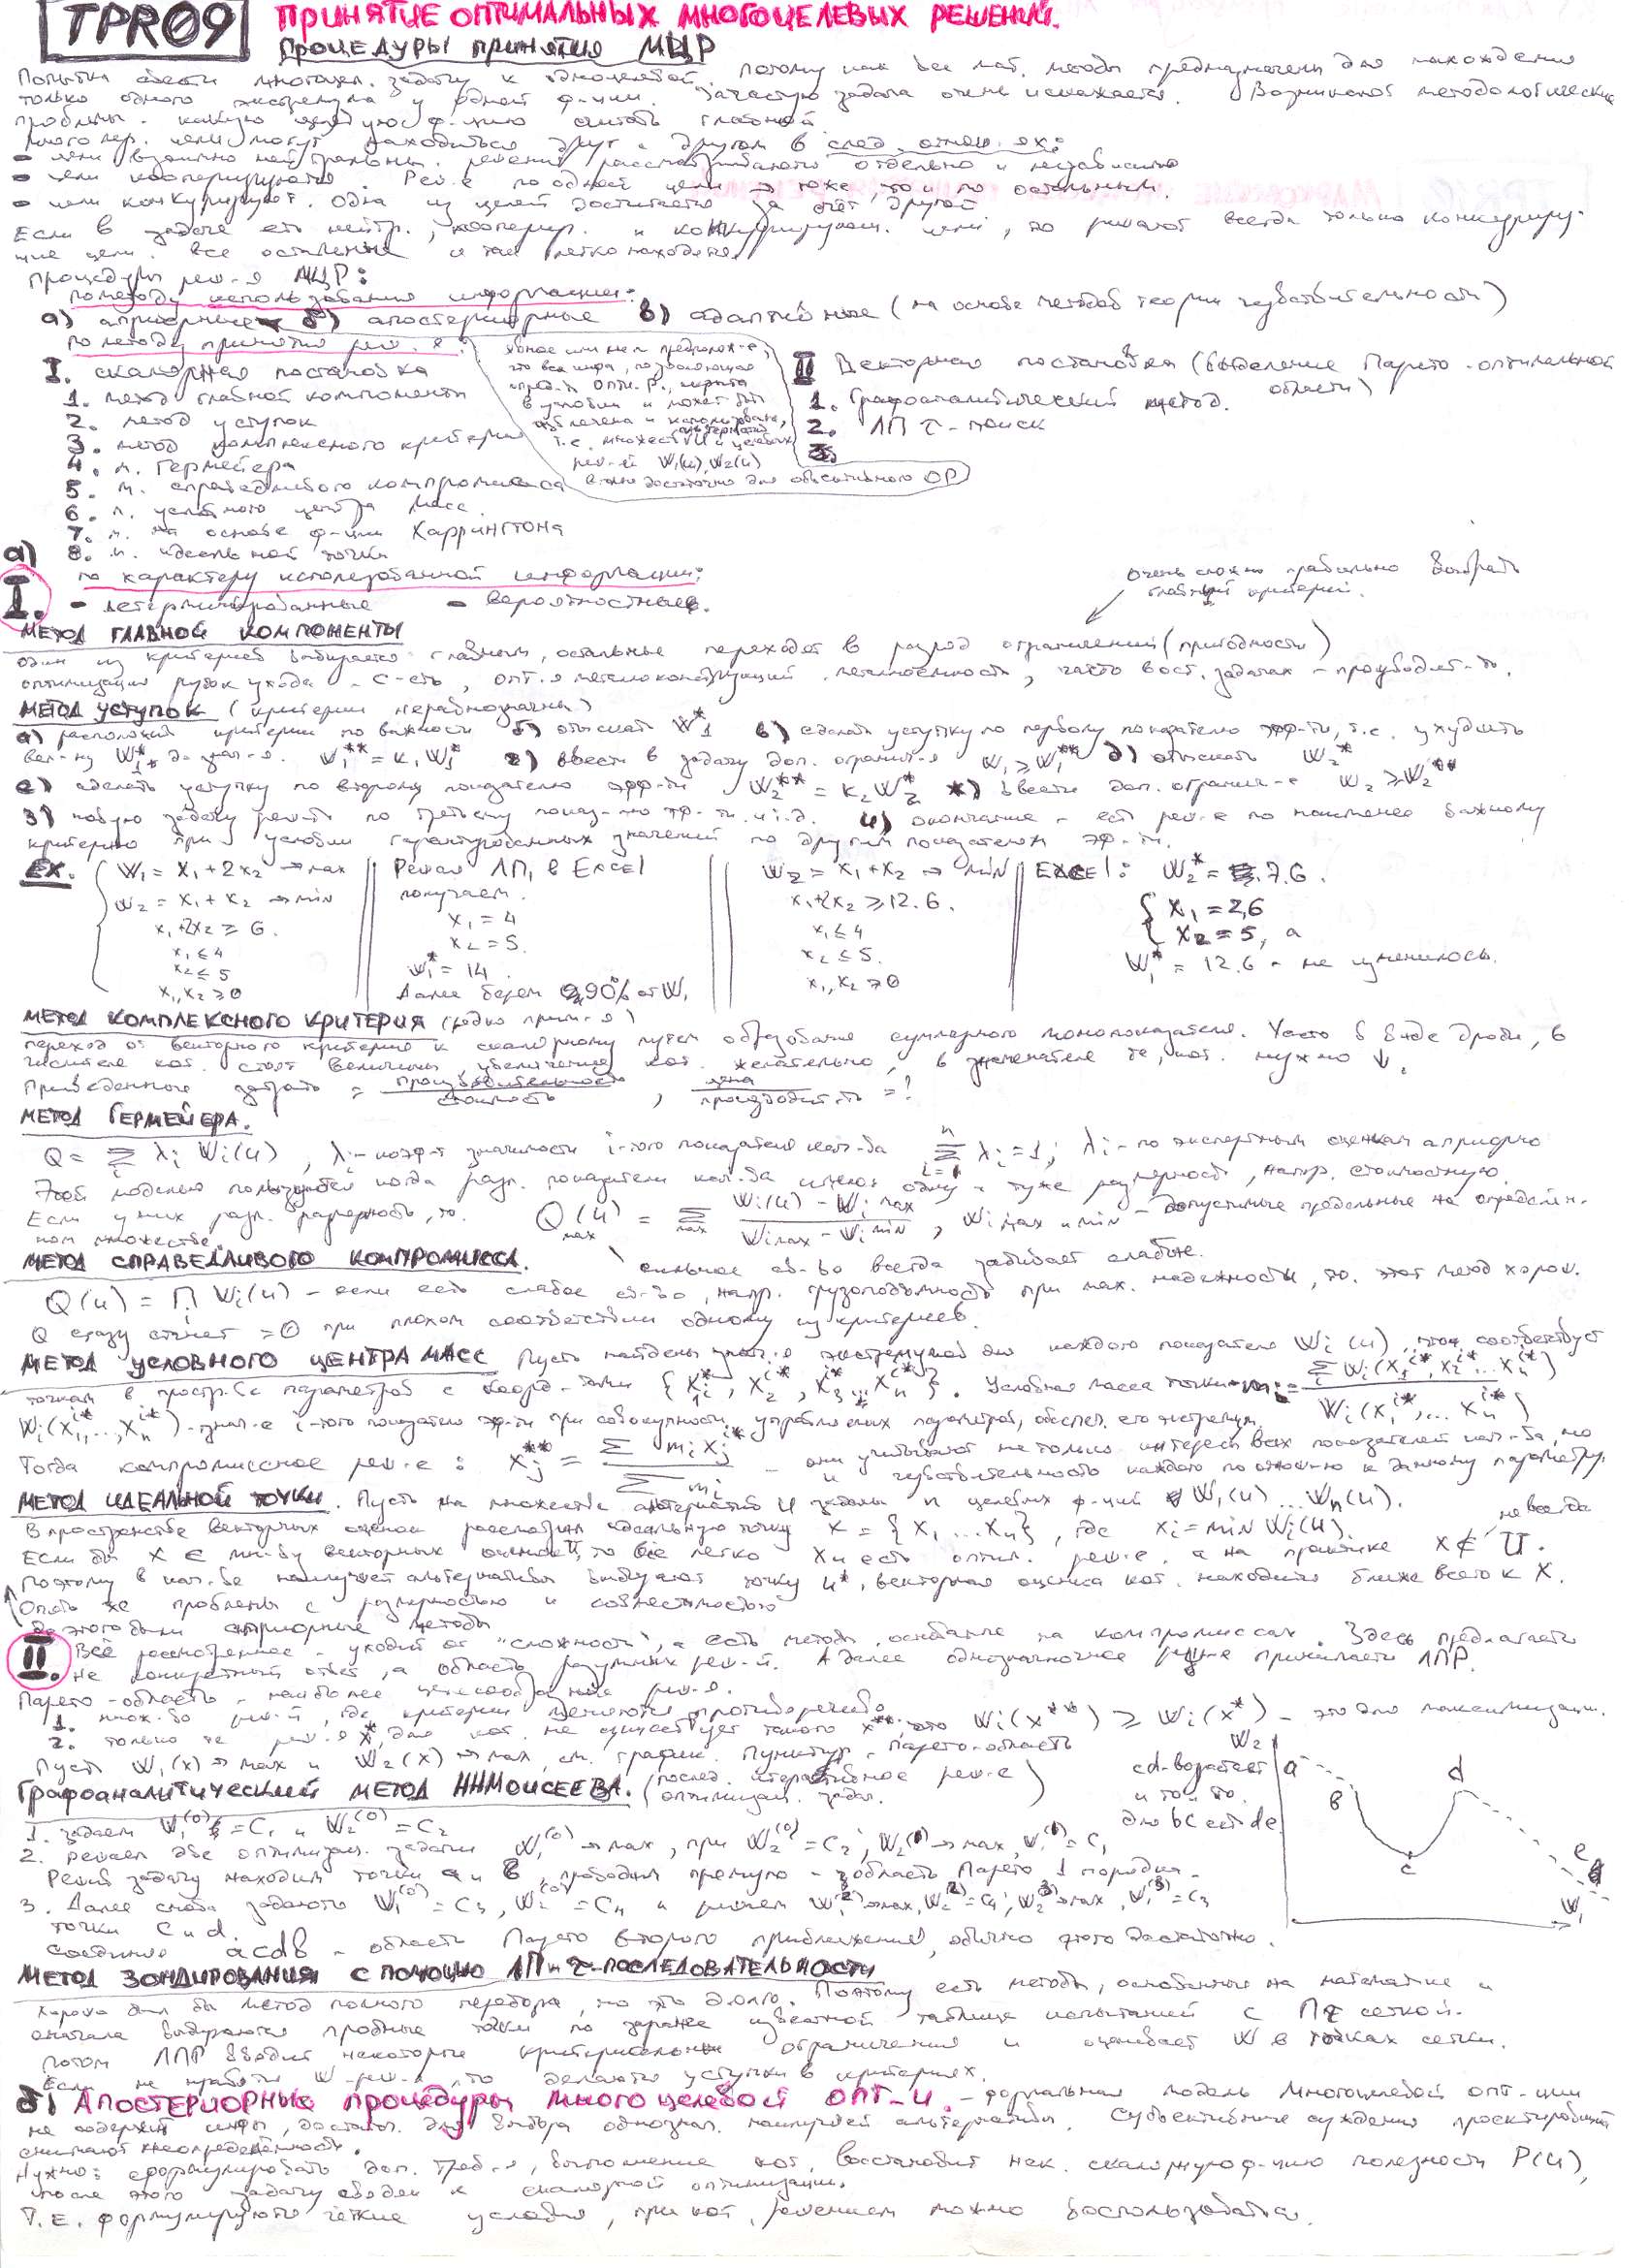 TPR09 ПРИНЯТИЕ ОПТИМАЛЬНЫХ МНОГОЦЕЛЕВЫХ РЕШЕНИЙ.
ПРОЦЕДУРЫ ПРИНЯТИЯ МЦР
Попытки свести многоцел. задачу к одноцелевой, потому как все мат. методы предназначены для нахождения
только одного экстремума у одной ф-ции. Зачастую задача очень искажается. Возникают методологические
проблемы. какую целевую ф-цию считать главной.
цели могут находиться друг с другом в след. отнош-ях:
- цели взаимно нейтральны. решения рассматриваются отдельно и независимо
- цели кооперируются. Реш-е по одной цели → тоже, что и по остальным.
- цели конкурируют. одна из целей достигается за счёт другой
Если в задаче есть нейтр., коопер. и конкурирующ. цели, то решают всегда только конкурирую-
щие цели. все остальные и так легко находятся
процедуры реш-я МЦР:
по методу использования информации:
а) априорные б) апостериорные в) адаптивные (на основе методов теории чувствительности)
по методу принятия реш-я:
I. скалярная постановка
1. метод главной компоненты
2. метод уступок
3. метод комплексного критерия
4. м. Гермейера
5. м. справедливого компромисса
6. м. условного центра масс.
7. м. на основе ф-ции Харрингтона
8. м. идеальной точки
явное или неявн. предполож-е,
что вся инфа, позволяющая
опред-ть опт. р., скрыта
в условии и может быть
извлечена и использована,
т.е. множества U альтернатив и целевых
реш-й W₁(u), W₂(u)
вполне достаточно для объективного ОР
II Векторная постановка (выделение Парето-оптимальной
области)
1. Графоаналитический метод.
2. ЛПτ-поиск
3.
а)
по характеру используемой информации:
I. - детерминированные - вероятностные.
очень сложно правильно выбрать
главный критерий.
МЕТОД ГЛАВНОЙ КОМПОНЕНТЫ
один из критериев выбирается главным, остальные переходят в разряд ограничений (пригодности)
оптимизация - с-сть, опт-я металлоконструкций - металлоёмкость, часто в ост. задачах - производит-ть.
МЕТОД УСТУПОК (критерии неравнозначны)
а) расположить критерии по важности б) отыскать W₁* в) сделать уступку по первому показателю эфф-ти, т.е. ухудшить
вел-ну W₁* до знач-я. W₁** = k₁W₁* г) ввести в задачу доп. огранич-я W₁ ≥ W₁** д) отыскать W₂*
е) сделать уступку по второму показателю эфф-ти W₂** = k₂W₂* ж) ввести доп. огранич-е W₂ ≥ W₂**
з) новую задачу решить по третьему показ-лю эф-ти. и т.д. и) окончание - есть реш-е по наименее важному
критерию при условии гарантированных значений по другим показателям эф-ти.
EX. W₁ = x₁ + 2x₂ → max
W₂ = x₁ + x₂ → min
x₁ + 2x₂ ≥ 6.
x₁ ≤ 4
x₂ ≤ 5
x₁, x₂ ≥ 0
Решая ЛП₁ в Excel
получаем
x₁ = 4
x₂ = 5.
W₁* = 14.
Далее берем 90% от W₁
W₂ = x₁ + x₂ → min
x₁ + 2x₂ ≥ 12.6.
x₁ ≤ 4
x₂ ≤ 5.
x₁, x₂ ≥ 0
EXCEL: W₂* = 7.6.
x₁ = 2,6
x₂ = 5, а
W₁* = 12.6 - не изменилось.
МЕТОД КОМПЛЕКСНОГО КРИТЕРИЯ (редко прим-я)
переход от векторного критерия к скалярному путем образования суммарного монопоказателя. Часто в виде дроби, в
числителе кот. стоят величины, увеличение кот. желательно, в знаменателе те, кот. нужно ↓.
Приведенные затраты = производительность / стоимость, цена / производит-ть = ?
МЕТОД ГЕРМЕЙЕРА.
Q = Σ λᵢ Wᵢ(u), λᵢ - коэф-т значимости i-того показателя кач-ва Σ λᵢ = 1; λᵢ - по экспертным оценкам априорно
Этой моделью пользуются когда разл. показатели кач-ва имеют одну и туже размерность, напр. стоимостную.
Если у них разл. размерность, то. Q(u) = Σ (Wᵢ(u) - Wᵢ max) / (Wᵢmax - Wᵢ min), Wᵢ max и min - допустимые предельные на определён-
ном множестве.
МЕТОД СПРАВЕДЛИВОГО КОМПРОМИССА. сильное св-во всегда забивает слабое.
Q(u) = П Wᵢ(u) - если есть слабое св-во, напр. грузоподъёмность при мах. надежности, то. этот метод хорош.
Q сразу станет = 0 при плохом соответствии одному из критериев.
МЕТОД УСЛОВНОГО ЦЕНТРА МАСС Пусть найдены знач-я экстремумов для каждого показателя Wᵢ(u), этом соответствует
точкам в простр-ве параметров с коорд-тами {x₁ⁱ*, x₂ⁱ*, x₃ … xₙⁱ*}. Условная масса точки mᵢ = Σ Wᵢ(x₁ⁱ*, x₂ⁱ* … xₙⁱ*) / Wᵢ(x₁ⁱ*, … xₙⁱ*)
Wᵢ(x₁ⁱ*, …, xₙⁱ*) - знач-е i-того показателя эф-ти при совокупности управляемых параметров, обеспеч. его экстремум.
Тогда компромиссное реш-е: xⱼ** = Σ mᵢxⱼⁱ* / Σ mᵢ - они учитывают не только интересы всех показателей кач-ва, но
и чувствительность каждого по отнош-ю к данному параметру.
МЕТОД ИДЕАЛЬНОЙ ТОЧКИ. Пусть на множестве альтернатив U заданы n целевых ф-ций W₁(u) … Wₙ(u).
В пространстве векторных оценок рассмотрим идеальную точку x = {x₁ … xₙ}, где xᵢ = min Wᵢ(u). не всегда
Если бы x ∈ мн-ву векторных оценок, то всё легко x и есть оптим. реш-е, а на практике x ∉ U.
Поэтому в кач-ве наилучшей альтернативы выбирают точку u*, векторная оценка кот. находится ближе всего к X.
Опять же проблемы с размерностью и совместимостью
До этого были априорные методы
II. Всё рассмотренное - уходит от "сложности", а есть методы, основанные на компромиссах. Здесь предлагается
не конкретный ответ, а область разумных реш-й. А далее однозначное реш-е принимается ЛПР.
Парето-область - наиболее целесообразные реш-я.
1. множ-во реш-й, где критерии меняются противоречиво.
2. только те реш-я x*, для кот. не существует такого x**, что Wᵢ(x**) ≥ Wᵢ(x*) - это для максимизации.
Пусть W₁(x) → max и W₂(x) → max, см. график. Пунктир - Парето-область
W₂ a b c d e W₁
cd-возрастает
и то и то.
для bc есть de
Графоаналитический МЕТОД НН МОИСЕЕВА. (послед. итеративное реш-е
оптимизац. задач.)
1. задаем W₁⁽⁰⁾ = C₁ и W₂⁽⁰⁾ = C₂
2. решаем две оптимизац. задачи W₁⁽⁰⁾ → max, при W₂⁽⁰⁾ = C₂; W₂⁽¹⁾ → max, W₁⁽¹⁾ = C₁
Решив задачу находим точки a и b, проводим прямую - область Парето 1 порядка.
3. Далее снова задаются W₁⁽⁰⁾ = C₃, W₂⁽⁰⁾ = C₄ и решаем W₁⁽²⁾ → max, W₂⁽²⁾ = C₄; W₂⁽³⁾ → max, W₁⁽³⁾ = C₃
точки c и d.
соединив acdb - область Парето второго приближения, обычно этого достаточно.
МЕТОД ЗОНДИРОВАНИЯ С ПОМОЩЬЮ ЛПτ-ПОСЛЕДОВАТЕЛЬНОСТИ
Хорош был бы метод полного перебора, но это долго. Поэтому есть методы, основанные на математике и
сначала выбираются пробные точки по заранее известной таблице испытаний с ЛПτ сеткой.
потом ЛПР вводит некоторые критериальные ограничения и оценивает W в точках сетки.
Если не W реш-я, то делаются уступки в критериях.
б) АПОСТЕРИОРНЫЕ процедуры многоцелевой ОПТ-И. - формальная модель многоцелевой опт-ции
не содержит инфы, достаточ. для выбора однознач. наилучшей альтернативы. Субъективные суждения проектировщика
снимают неопределённость.
Нужно: сформулировать доп. треб-я, выполнение кот. восстановит нек. скалярную ф-цию полезности P(u),
после этого задачу сводят к скалярной оптимизации.
Т.Е. формулируются чёткие условия, при кот. решением можно воспользоваться.